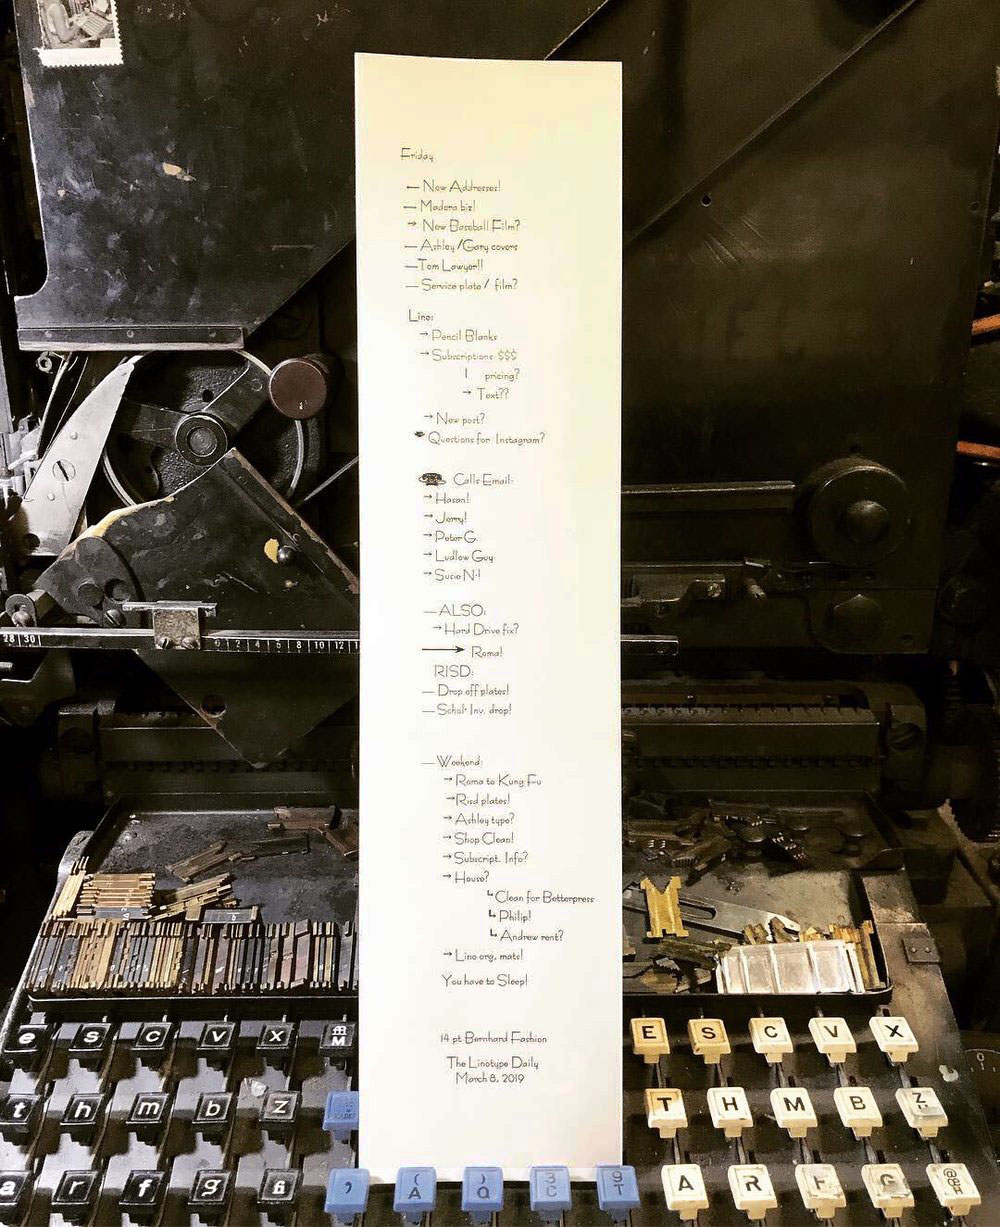 Friday
— New Addresses!
— Madera biz!
→ New Baseball Film?
— Ashley / Gary covers
— Tom Lawyer!!
— Service plate / film?
Lino:
→ Pencil Blanks
→ Subscriptions $$$
| pricing?
→ Text??
→ New post?
Questions for Instagram?
Calls Email:
→ Hasan!
→ Jerry!
→ Peter G.
→ Ludlow Guy
→ Susie N.!
— ALSO:
→ Hard Drive fix?
→ Roma!
RISD:
— Drop off plates!
— Schol. Inv. drop!
— Weekend:
→ Roma to Kung Fu
→ Risd plates!
→ Ashley type?
→ Shop Clean!
→ Subscript. Info?
→ House?
↳ Clean for Betterpress
↳ Philip!
↳ Andrew rent?
→ Lino org. mats!
You have to Sleep!
14 pt Bernhard Fashion
The Linotype Daily
March 8, 2019
28 30 0 2 4 6 8 10 12 1
e s c v x ffl M E S C V X
t h m b z T H M B Z
a r f g fi , ( A ) Q 3 C 9 T A R F G @ Œ